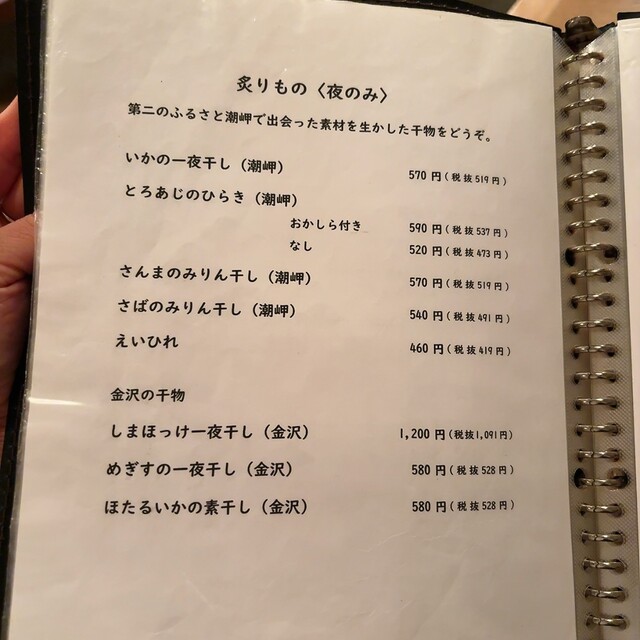 炙りもの〈夜のみ〉
第二のふるさと潮岬で出会った素材を生かした干物をどうぞ。
いかの一夜干し（潮岬） 570 円（税抜519円）
とろあじのひらき（潮岬）
おかしら付き 590 円（税抜537円）
なし 520 円（税抜473円）
さんまのみりん干し（潮岬） 570 円（税抜519円）
さばのみりん干し（潮岬） 540 円（税抜491円）
えいひれ 460 円（税抜419円）
金沢の干物
しまほっけ一夜干し（金沢） 1,200 円（税抜1,091円）
めぎすの一夜干し（金沢） 580 円（税抜528円）
ほたるいかの素干し（金沢） 580 円（税抜528円）